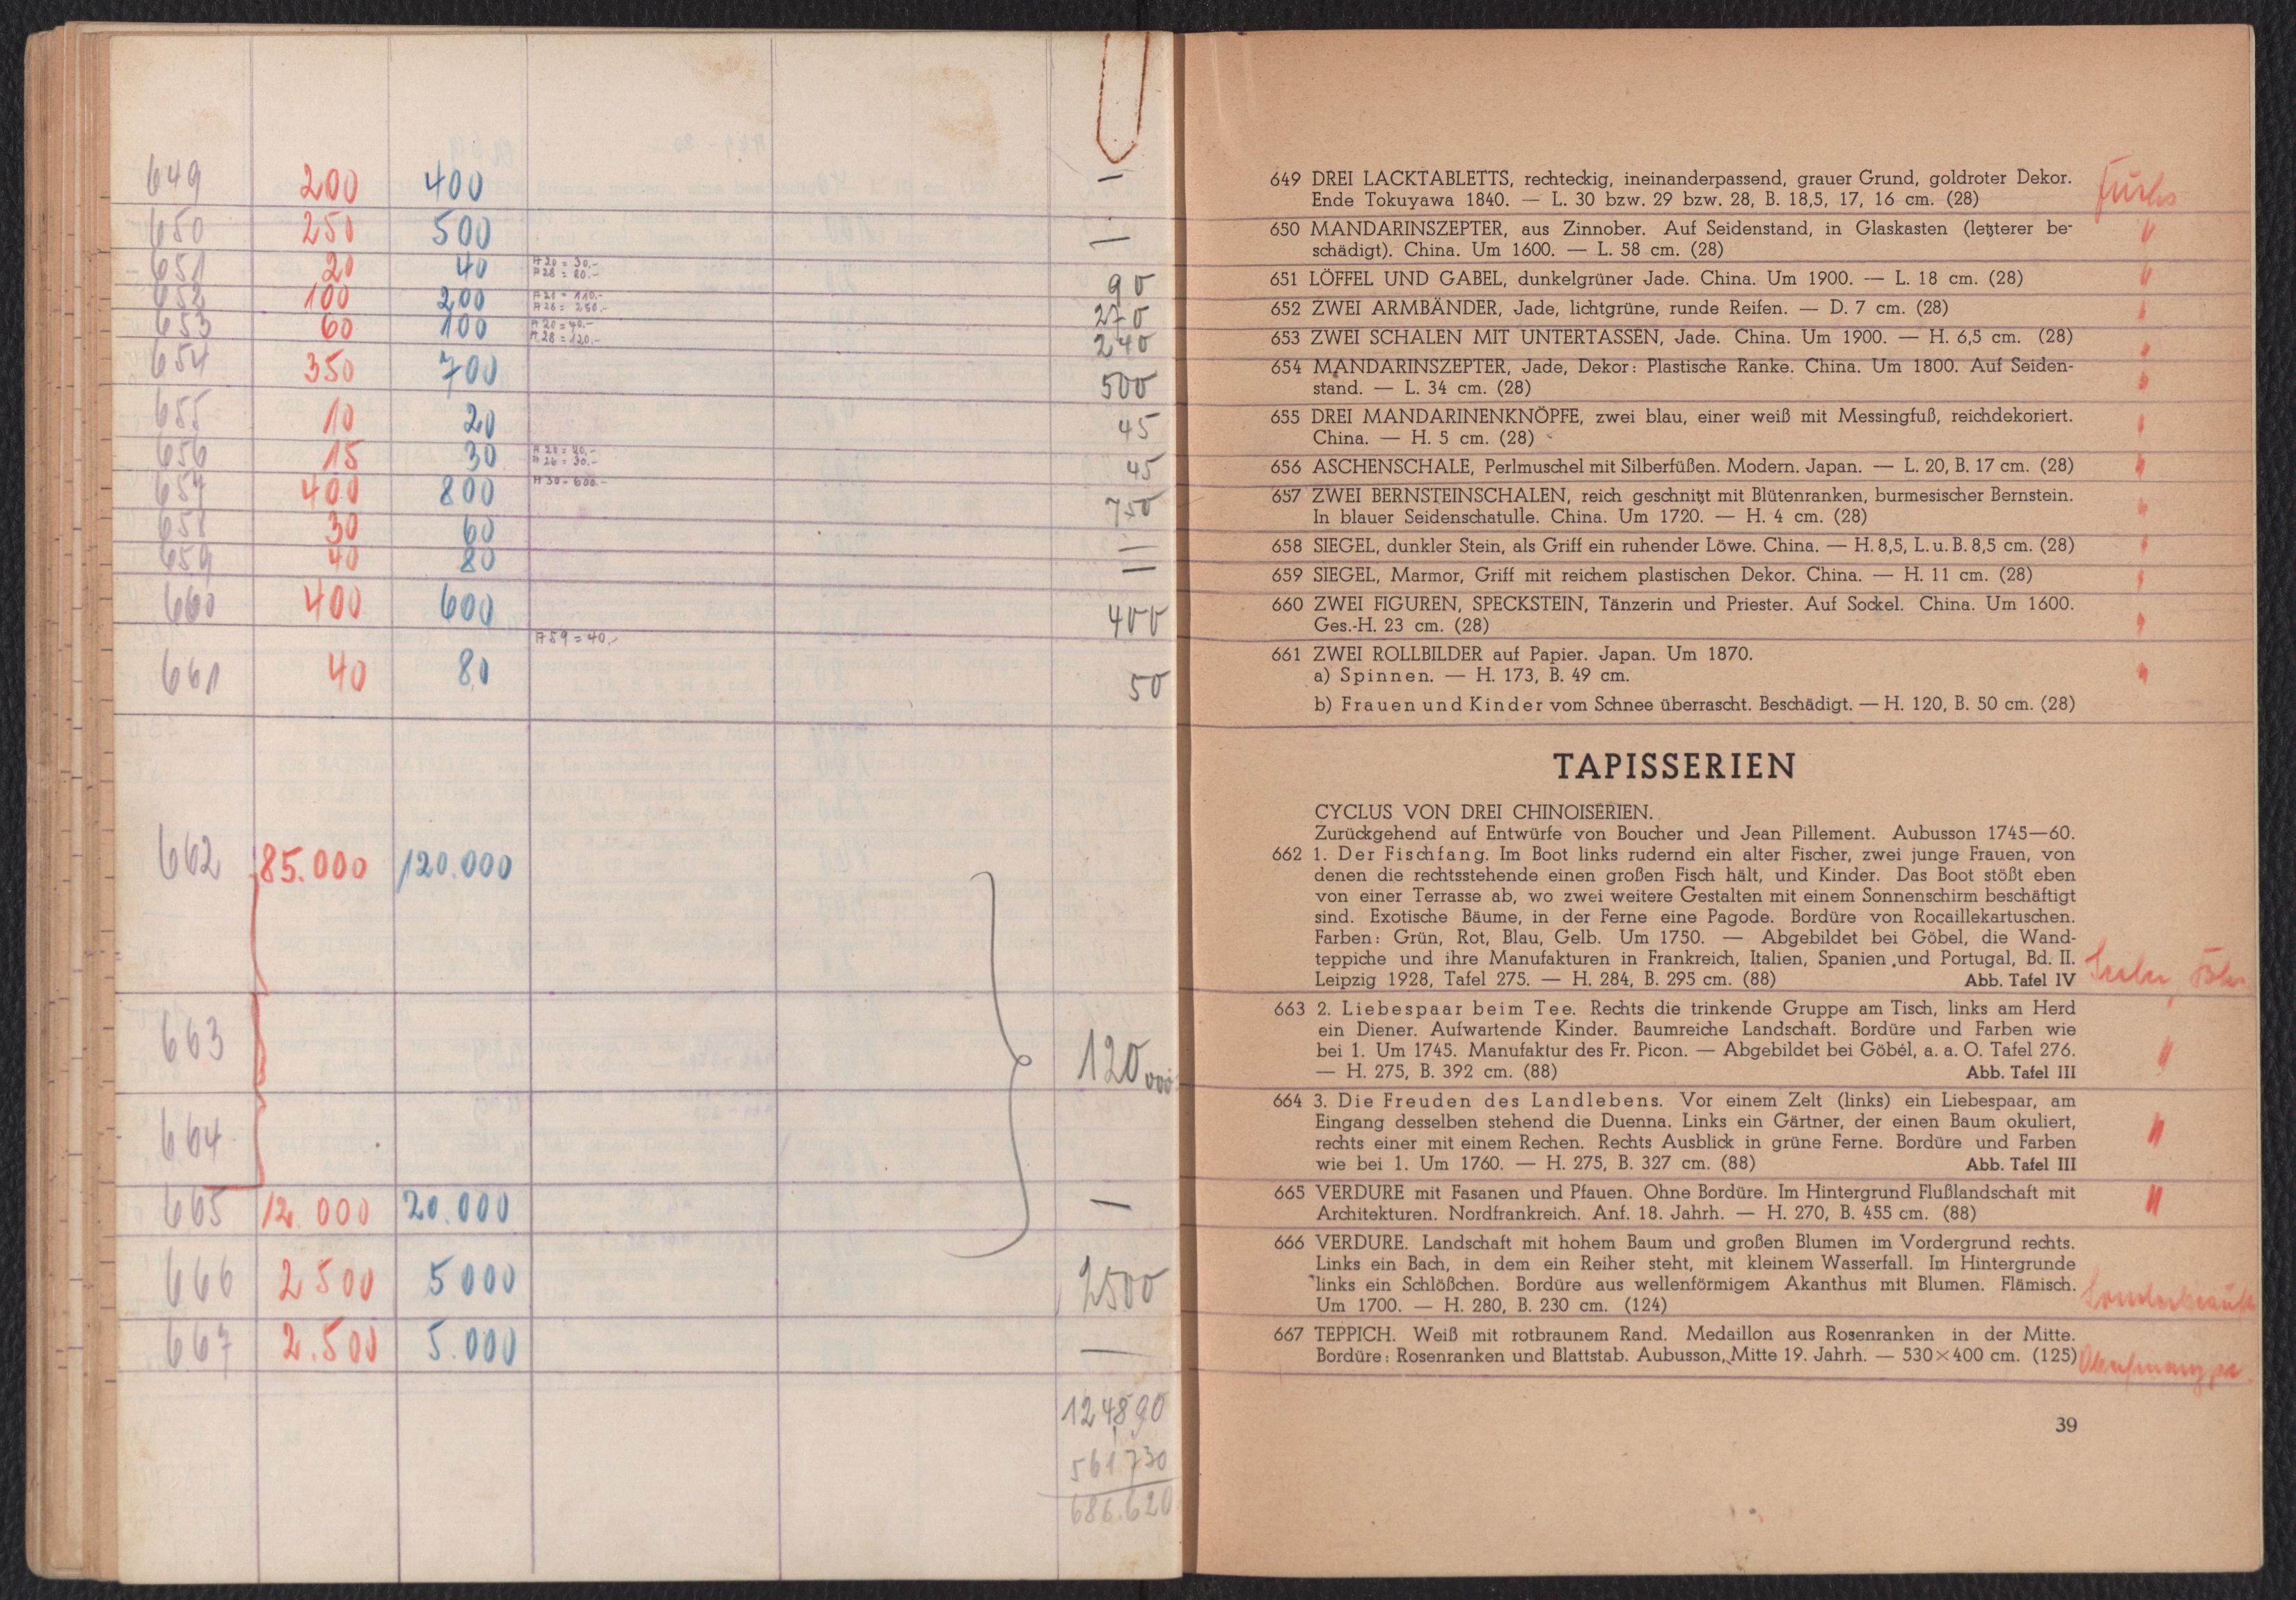 649 200 400 —
650 250 500 —
651 20 40 A 20 = 30.- 90
A 28 = 80.-
652 100 200 A 20 = 110.- 270
A 28 = 250.-
653 60 100 A 20 = 40.- 240
A 28 = 120.-
654 350 700 500
655 10 20 45
656 15 30 45
657 400 800 A 30 = 600.- 750
658 30 60 —
659 40 80 —
660 400 600 400
A 59 = 40.-
661 40 80 50
662 85.000 120.000
663 120000
664
665 12.000 20.000 —
666 2500 5000 2500
667 2.500 5.000 —
124890
561730
686.620
649 DREI LACKTABLETTS, rechteckig, ineinanderpassend, grauer Grund, goldroter Dekor.
Ende Tokuyawa 1840. — L. 30 bzw. 29 bzw. 28, B. 18,5, 17, 16 cm. (28)
Fuchs
650 MANDARINSZEPTER, aus Zinnober. Auf Seidenstand, in Glaskasten (letzterer be-
schädigt). China. Um 1600. — L. 58 cm. (28) "
651 LÖFFEL UND GABEL, dunkelgrüner Jade. China. Um 1900. — L. 18 cm. (28) "
652 ZWEI ARMBÄNDER, Jade, lichtgrüne, runde Reifen. — D. 7 cm. (28) "
653 ZWEI SCHALEN MIT UNTERTASSEN, Jade. China. Um 1900. — H. 6,5 cm. (28) "
654 MANDARINSZEPTER, Jade, Dekor: Plastische Ranke. China. Um 1800. Auf Seiden-
stand. — L. 34 cm. (28) "
655 DREI MANDARINENKNÖPFE, zwei blau, einer weiß mit Messingfuß, reichdekoriert.
China. — H. 5 cm. (28) "
656 ASCHENSCHALE, Perlmuschel mit Silberfüßen. Modern. Japan. — L. 20, B. 17 cm. (28) "
657 ZWEI BERNSTEINSCHALEN, reich geschnitzt mit Blütenranken, burmesischer Bernstein.
In blauer Seidenschatulle. China. Um 1720. — H. 4 cm. (28) "
658 SIEGEL, dunkler Stein, als Griff ein ruhender Löwe. China. — H. 8,5, L. u. B. 8,5 cm. (28) "
659 SIEGEL, Marmor, Griff mit reichem plastischen Dekor. China. — H. 11 cm. (28) "
660 ZWEI FIGUREN, SPECKSTEIN, Tänzerin und Priester. Auf Sockel. China. Um 1600.
Ges.-H. 23 cm. (28) "
661 ZWEI ROLLBILDER auf Papier. Japan. Um 1870.
a) Spinnen. — H. 173, B. 49 cm. "
b) Frauen und Kinder vom Schnee überrascht. Beschädigt. — H. 120, B. 50 cm. (28)
TAPISSERIEN
CYCLUS VON DREI CHINOISERIEN.
Zurückgehend auf Entwürfe von Boucher und Jean Pillement. Aubusson 1745—60.
662 1. Der Fischfang. Im Boot links rudernd ein alter Fischer, zwei junge Frauen, von
denen die rechtsstehende einen großen Fisch hält, und Kinder. Das Boot stößt eben
von einer Terrasse ab, wo zwei weitere Gestalten mit einem Sonnenschirm beschäftigt
sind. Exotische Bäume, in der Ferne eine Pagode. Bordüre von Rocaillekartuschen.
Farben: Grün, Rot, Blau, Gelb. Um 1750. — Abgebildet bei Göbel, die Wand-
teppiche und ihre Manufakturen in Frankreich, Italien, Spanien und Portugal, Bd. II.
Leipzig 1928, Tafel 275. — H. 284, B. 295 cm. (88) Abb. Tafel IV
663 2. Liebespaar beim Tee. Rechts die trinkende Gruppe am Tisch, links am Herd
ein Diener. Aufwartende Kinder. Baumreiche Landschaft. Bordüre und Farben wie
bei 1. Um 1745. Manufaktur des Fr. Picon. — Abgebildet bei Göbél, a. a. O. Tafel 276.
— H. 275, B. 392 cm. (88) Abb. Tafel III "
664 3. Die Freuden des Landlebens. Vor einem Zelt (links) ein Liebespaar, am
Eingang desselben stehend die Duenna. Links ein Gärtner, der einen Baum okuliert,
rechts einer mit einem Rechen. Rechts Ausblick in grüne Ferne. Bordüre und Farben
wie bei 1. Um 1760. — H. 275, B. 327 cm. (88) Abb. Tafel III "
665 VERDURE mit Fasanen und Pfauen. Ohne Bordüre. Im Hintergrund Flußlandschaft mit
Architekturen. Nordfrankreich. Anf. 18. Jahrh. — H. 270, B. 455 cm. (88) "
666 VERDURE. Landschaft mit hohem Baum und großen Blumen im Vordergrund rechts.
Links ein Bach, in dem ein Reiher steht, mit kleinem Wasserfall. Im Hintergrunde
links ein Schlößchen. Bordüre aus wellenförmigem Akanthus mit Blumen. Flämisch.
Um 1700. — H. 280, B. 230 cm. (124)
667 TEPPICH. Weiß mit rotbraunem Rand. Medaillon aus Rosenranken in der Mitte.
Bordüre: Rosenranken und Blattstab. Aubusson, Mitte 19. Jahrh. — 530×400 cm. (125)
39